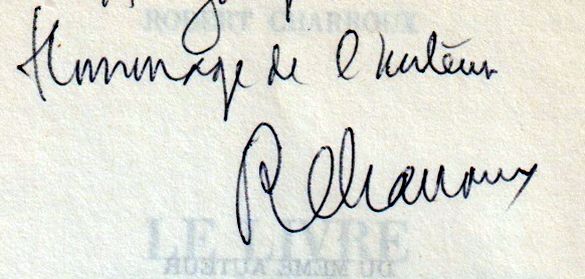 ROBERT CHARROUX
Hommage de l'Auteur
R Charroux
LE LIVRE
DU MEME AUTEUR